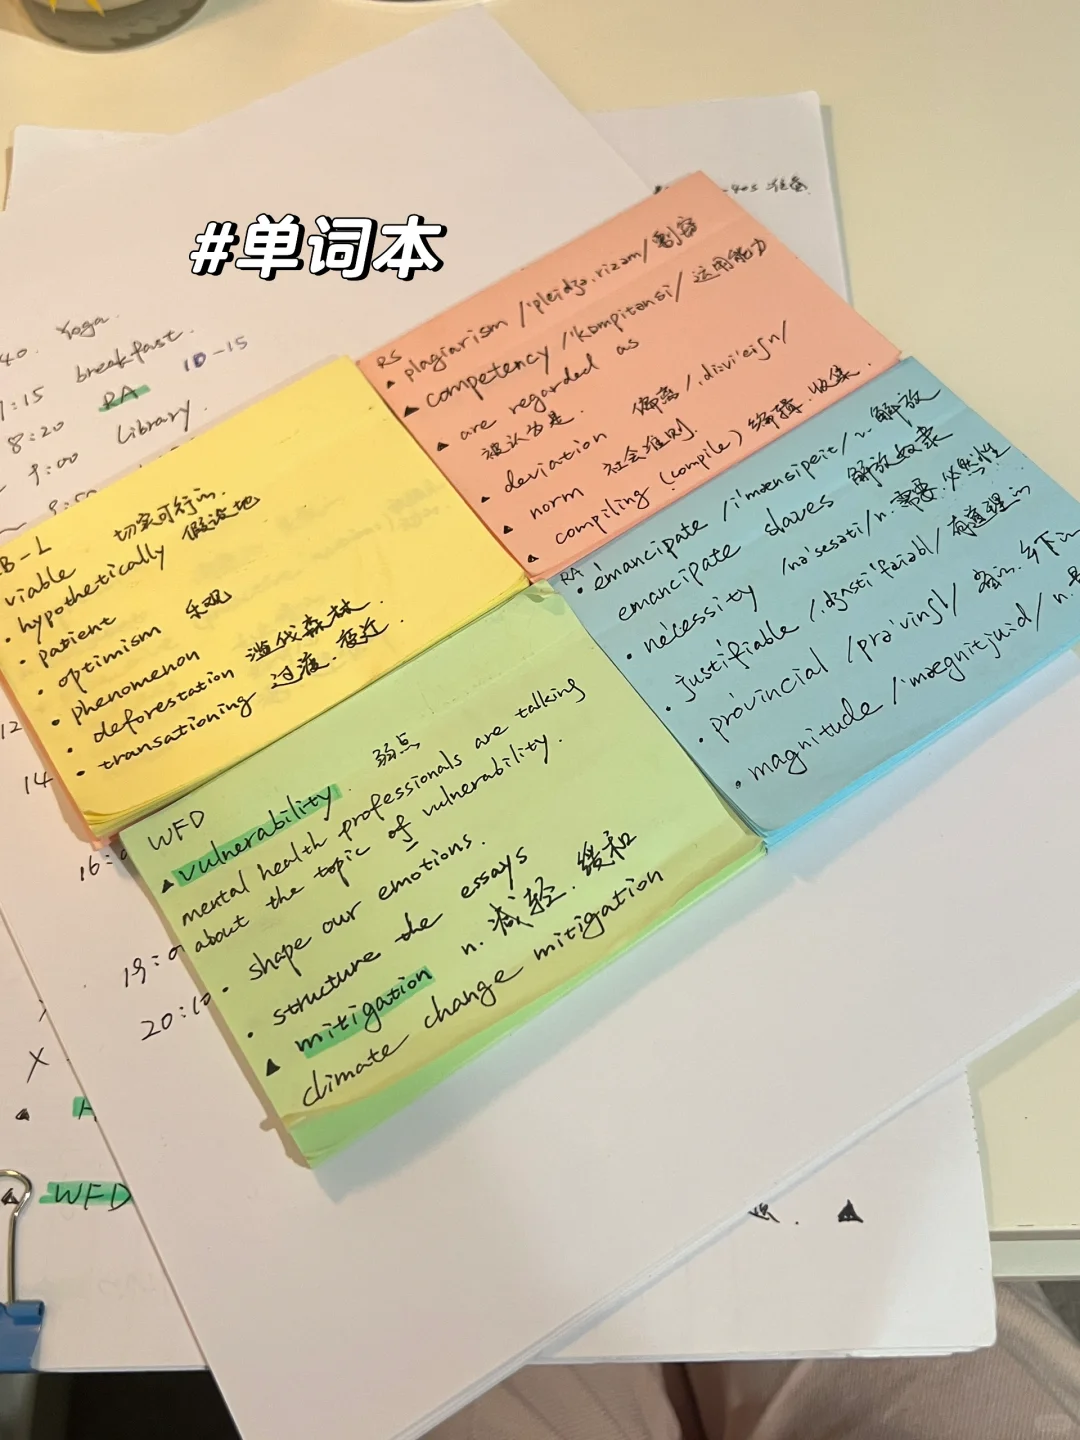 #单词本
Yoga.
7:15 breakfast.
8:20 RA 10-15
9:00 Library.
12
14
16:0
19:0
20:10
X
WFD
RS
▲ plagiarism /'pleidʒə.rizəm/ 剽窃
▲ competency /'kɒmpitənsi/ 运用能力
▲ are regarded as
被认为是.
▲ deviation 偏离 /.diːvi'eiʃn/
▲ norm 社会准则.
▲ compiling (compile) 编辑.收集.
B-L
viable 切实可行的.
• hypothetically 假设地
• patient
• optimism 乐观
• phenomenon
• deforestation 滥伐森林.
• transationing 过渡.变迁.
RA
• emancipate /i'mænsipeit/ v. 解放
emancipate slaves 解放奴隶
• necessity /nə'sesəti/ n. 需要.必然性
• justifiable /.dʒʌsti'faiəbl/ 有道理的
• provincial /prə'vinʃl/ 省的.乡下的
• magnitude /'mægnitjuːd/ n.
WFD
▲ vulnerability. 弱点
mental health professionals are talking
about the topic of vulnerability.
• shape our emotions.
• structure the essays
▲ mitigation n. 减轻.缓和
climate change mitigation